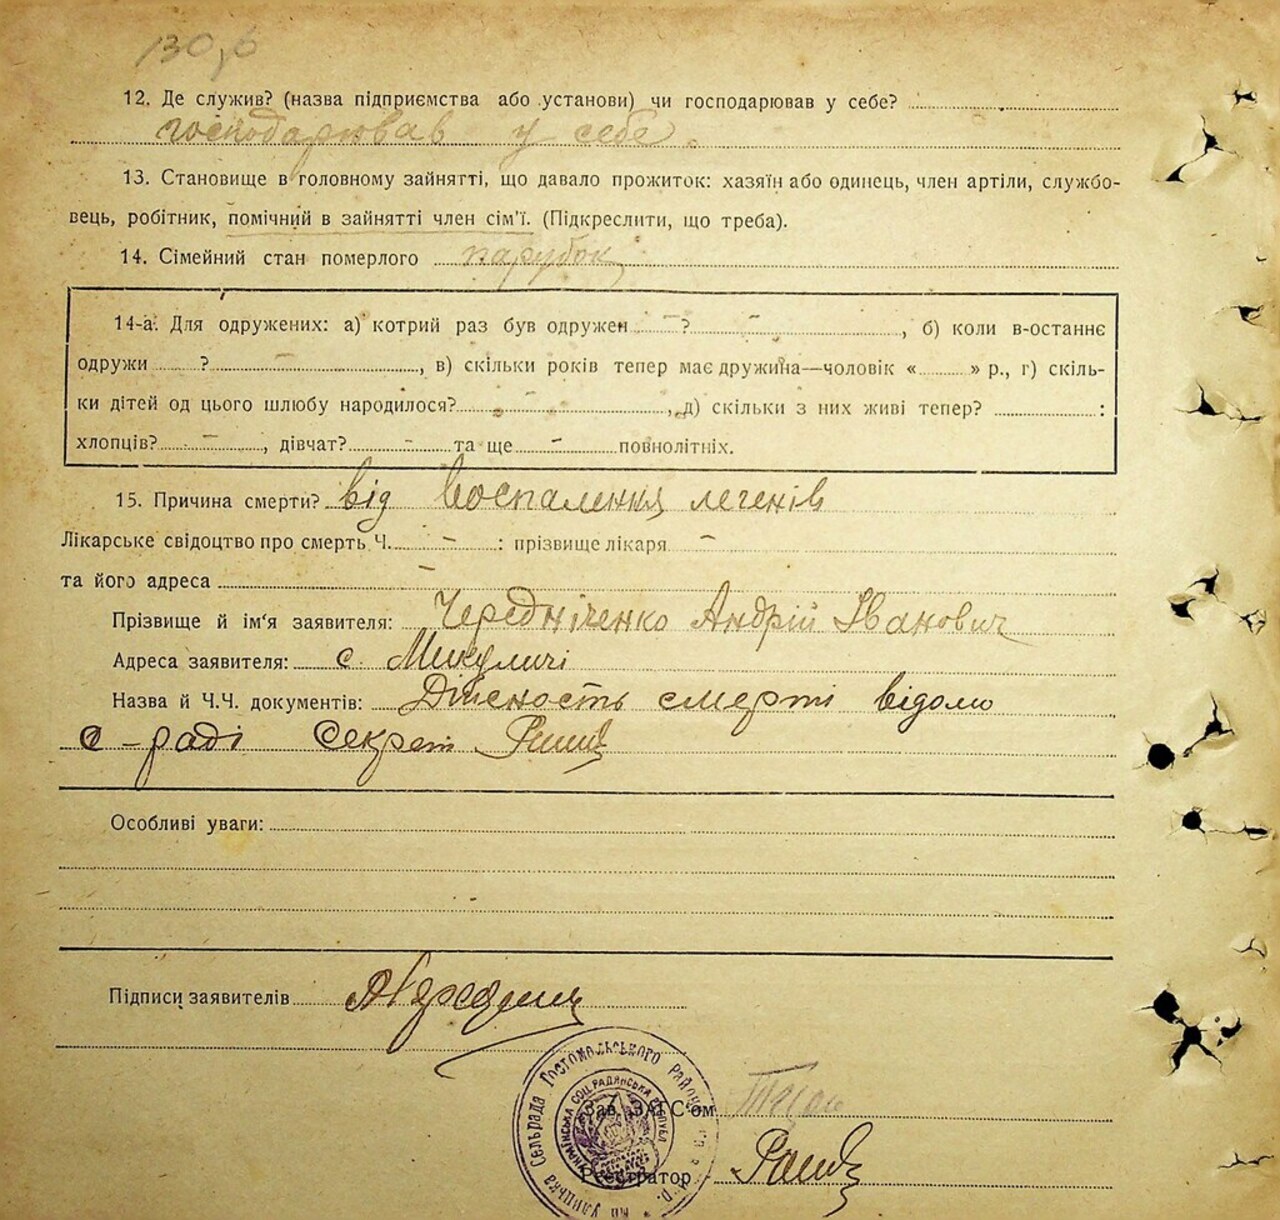 130,б
12. Де служив? (назва підприємства або установи) чи господарював у себе?
господарював у себе.
13. Становище в головному зайнятті, що давало прожиток: хазяїн або одинець, член артіли, службо-
вець, робітник, помічний в зайнятті член сім'ї. (Підкреслити, що треба).
14. Сімейний стан померлого парубок
14-а. Для одружених: а) котрий раз був одружен – ? –, б) коли в-останнє
одружи ? –, в) скільки років тепер має дружина—чоловік « » р., г) скіль-
ки дітей од цього шлюбу народилося? –, д) скільки з них живі тепер? :
хлопців? –, дівчат? – та ще – повнолітніх.
15. Причина смерти? від воспалення легенів
Лікарське свідоцтво про смерть Ч. – : прізвище лікаря –
та його адреса –
Прізвище й ім'я заявителя: Чередніченко Андрій Іванович
Адреса заявителя: с. Микуличі
Назва й Ч.Ч. документів: Дійсность смерті відомо
с-раді Секрет
Особливі уваги:
Підписи заявителів
Сельрада Гостомельського району
Українська Соц. Радянська Республ
Зав. ЗАГС'ом
Реєстратор